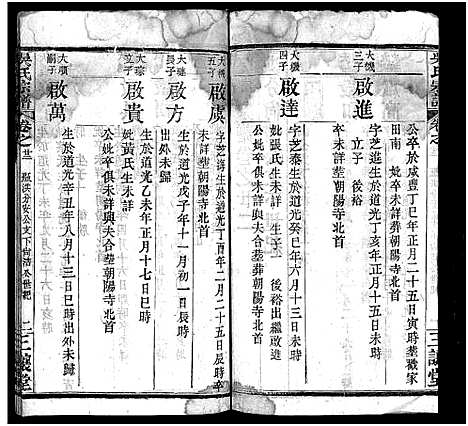 吳氏宗譜
公卒於咸豐丁巳年正月二十五日寅時塟戳家
田南 妣卒未詳塟朝陽寺北首
大機三子
啟進
字芝進生於道光丁亥年正月十五日未時
立子 後裕
公妣卒俱未詳塟朝陽寺北首
大機四子
啟達
字芝泰生於道光癸巳年六月十三日未時
妣張氏生未詳 生子一 後裕出繼啟進
公妣卒俱未詳與夫合塟葬朝陽寺北首
三讓堂
吳氏宗譜
大機五子
啟虞
字芝海生於道光丁酉年二月二十五日辰時卒
未詳塟朝陽寺北首
大璉長子
啟方
生於道光戊子年十一月初一日辰時
出外未歸
大璉立子
啟貴
生於道光乙未年正月十七日巳時
妣黃氏生未詳
公妣卒俱未詳與夫合塟朝陽寺北首
大順嗣子
啟萬
生於道光辛丑年八月十三日巳時出外未歸
卷之廿二
三讓堂